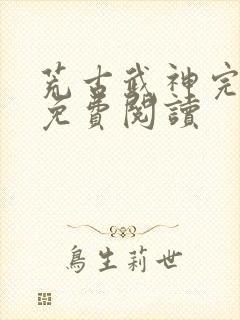 荒古武神完
免費閱讀
鳥生莉世